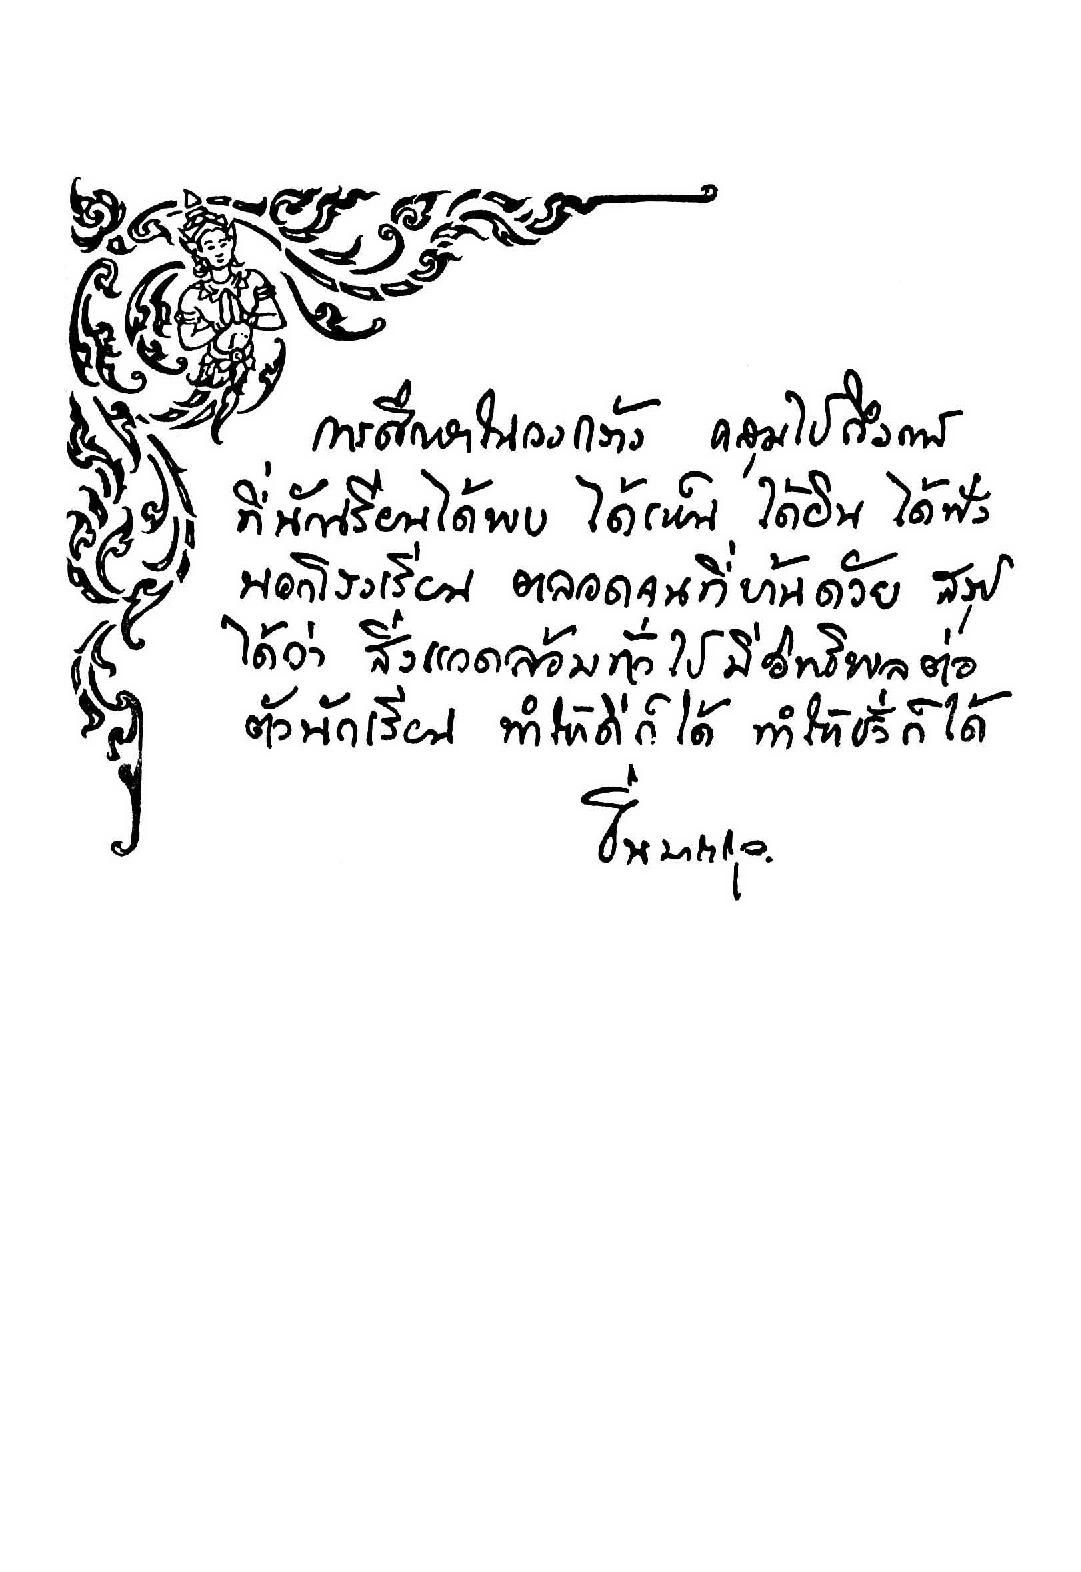 การศึกษาในวงกว้าง คลุมไปถึงการ
ที่นักเรียนได้พบ ได้เห็น ได้ยิน ได้ฟัง
นอกโรงเรียน ตลอดจนที่บ้านด้วย สรุป
ได้ว่า สิ่งแวดล้อมทั่วไป มีอิทธิพลต่อ
ตัวนักเรียน ทำให้ดีก็ได้ ทำให้ชั่วก็ได้